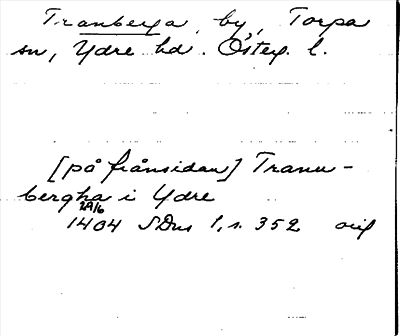 Tranberga, by, Torpa
sn, Ydre hd. Österg. l.
[på frånsidan] Trann-
bergha i Ydre
29/6
1404 SDns 1, s. 352 orig